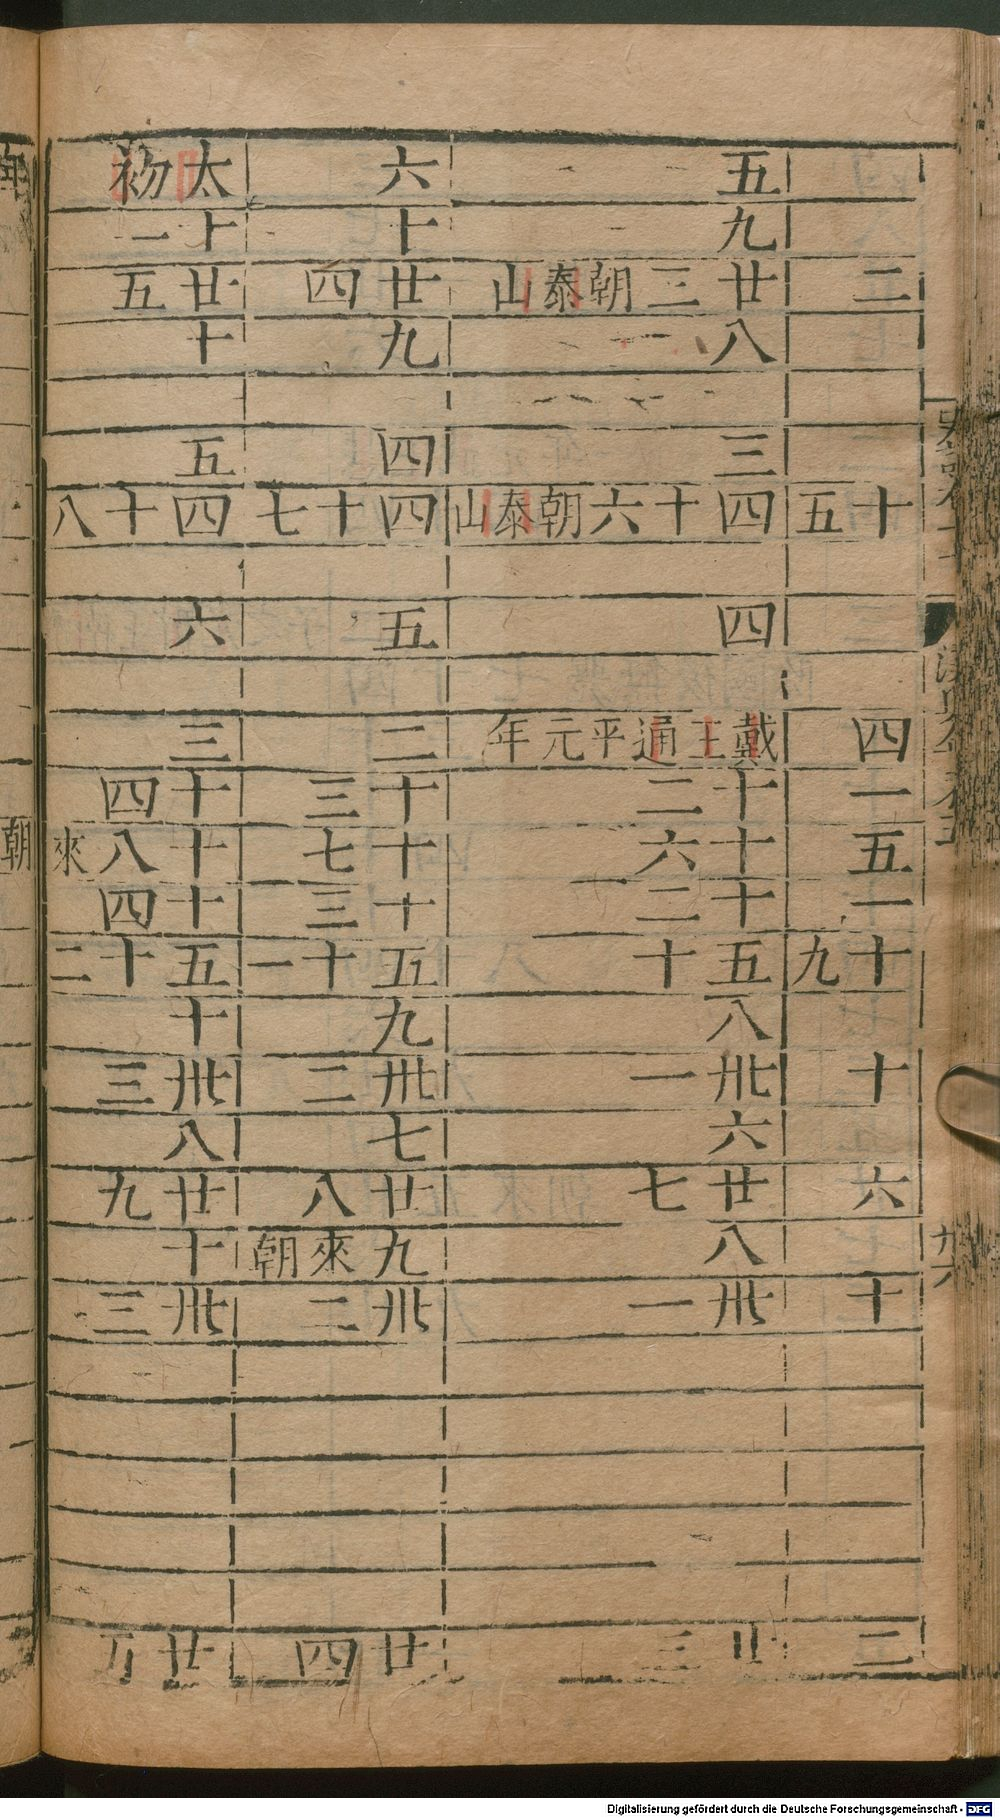 五 六 太初
九 十 十一
二 廿三朝泰山 廿四 廿五
八 九 十
三 四 五
十五 四十六朝泰山 四十七 四十八
四 五 六
四 戴王通平元年 二 三
一 十二 十三 十四
五 十六 十七 十八來
一 十二 十三 十四
十九 五十 五十一 五十二
八 九 十
十 卅一 卅二 卅三
六 七 八
六 廿七 廿八 廿九
八 九來朝 十
十 卅一 卅二 卅三
二 廿三 廿四 廿五
九六
朝
Digitalisierung gefördert durch die Deutsche Forschungsgemeinschaft - DFG